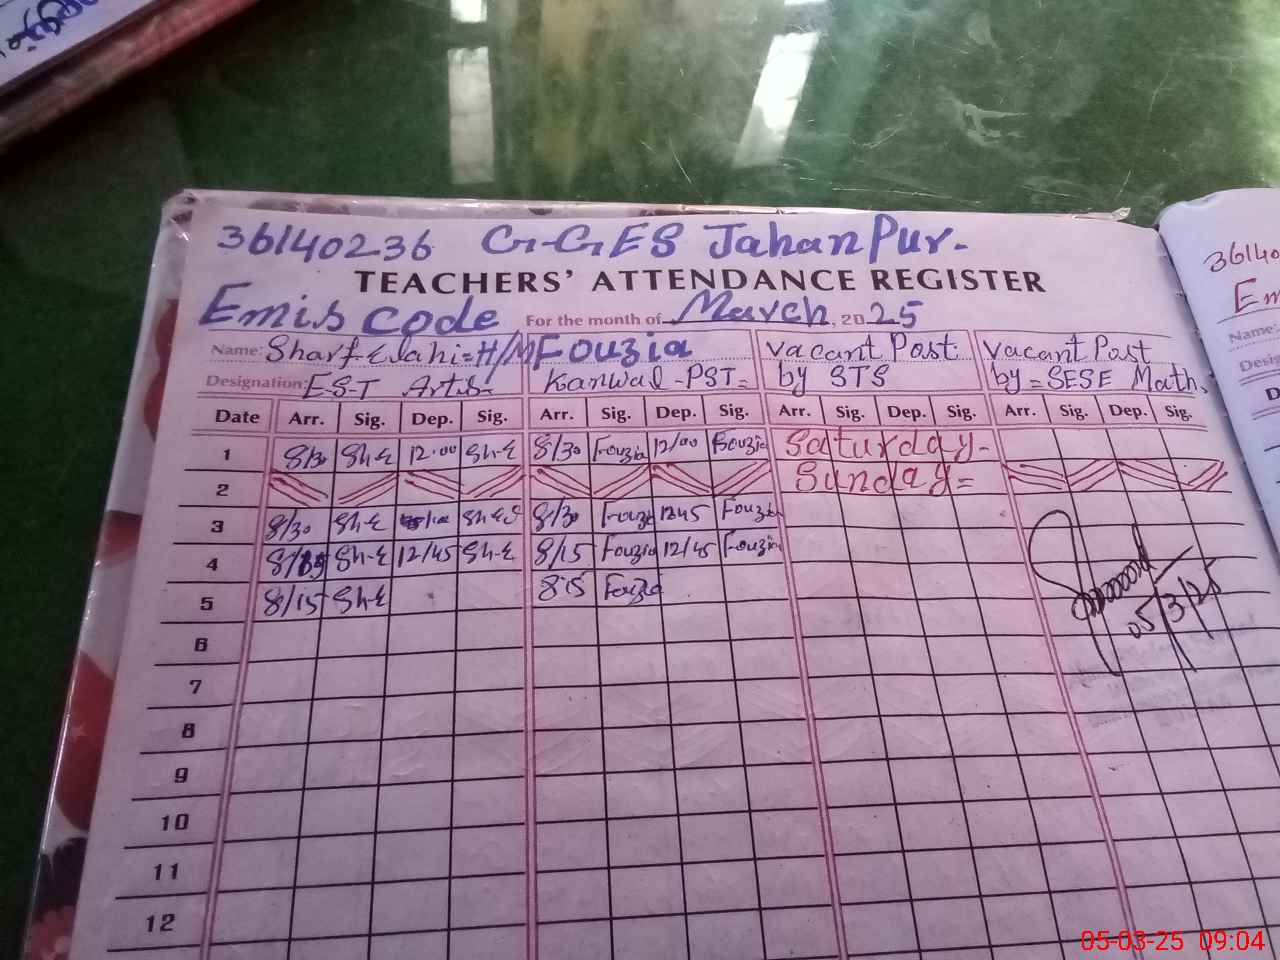 36140236 G-GES JahanPur-
TEACHERS' ATTENDANCE REGISTER
Emis code For the month of March, 2025
Name: Sharf Elahi=H/M Fouzia vacant Post vacant Post
Designation: E.S.T Arts- Kanwal-PST= by STS by=SESE Math.
Date Arr. Sig. Dep. Sig. Arr. Sig. Dep. Sig. Arr. Sig. Dep. Sig. Arr. Sig. Dep. Sig.
1 8/30 Sh-E 12.00 Sh-E 8/30 Fouzia 12/00 Fouzia Saturday-
2 Sunday=
3 8/30 Sh-E 8/30 Fouzi 1245 Fouzia
4 Sh-E 12/45 Sh-E 8/15 Fouzia 12/45 Fouzia
5 8/15 Sh-E 8:15 Fouzia
05/3/25
6
7
8
9
10
11
12
36140
Em
Name:
Desig
D
05-03-25 09:04